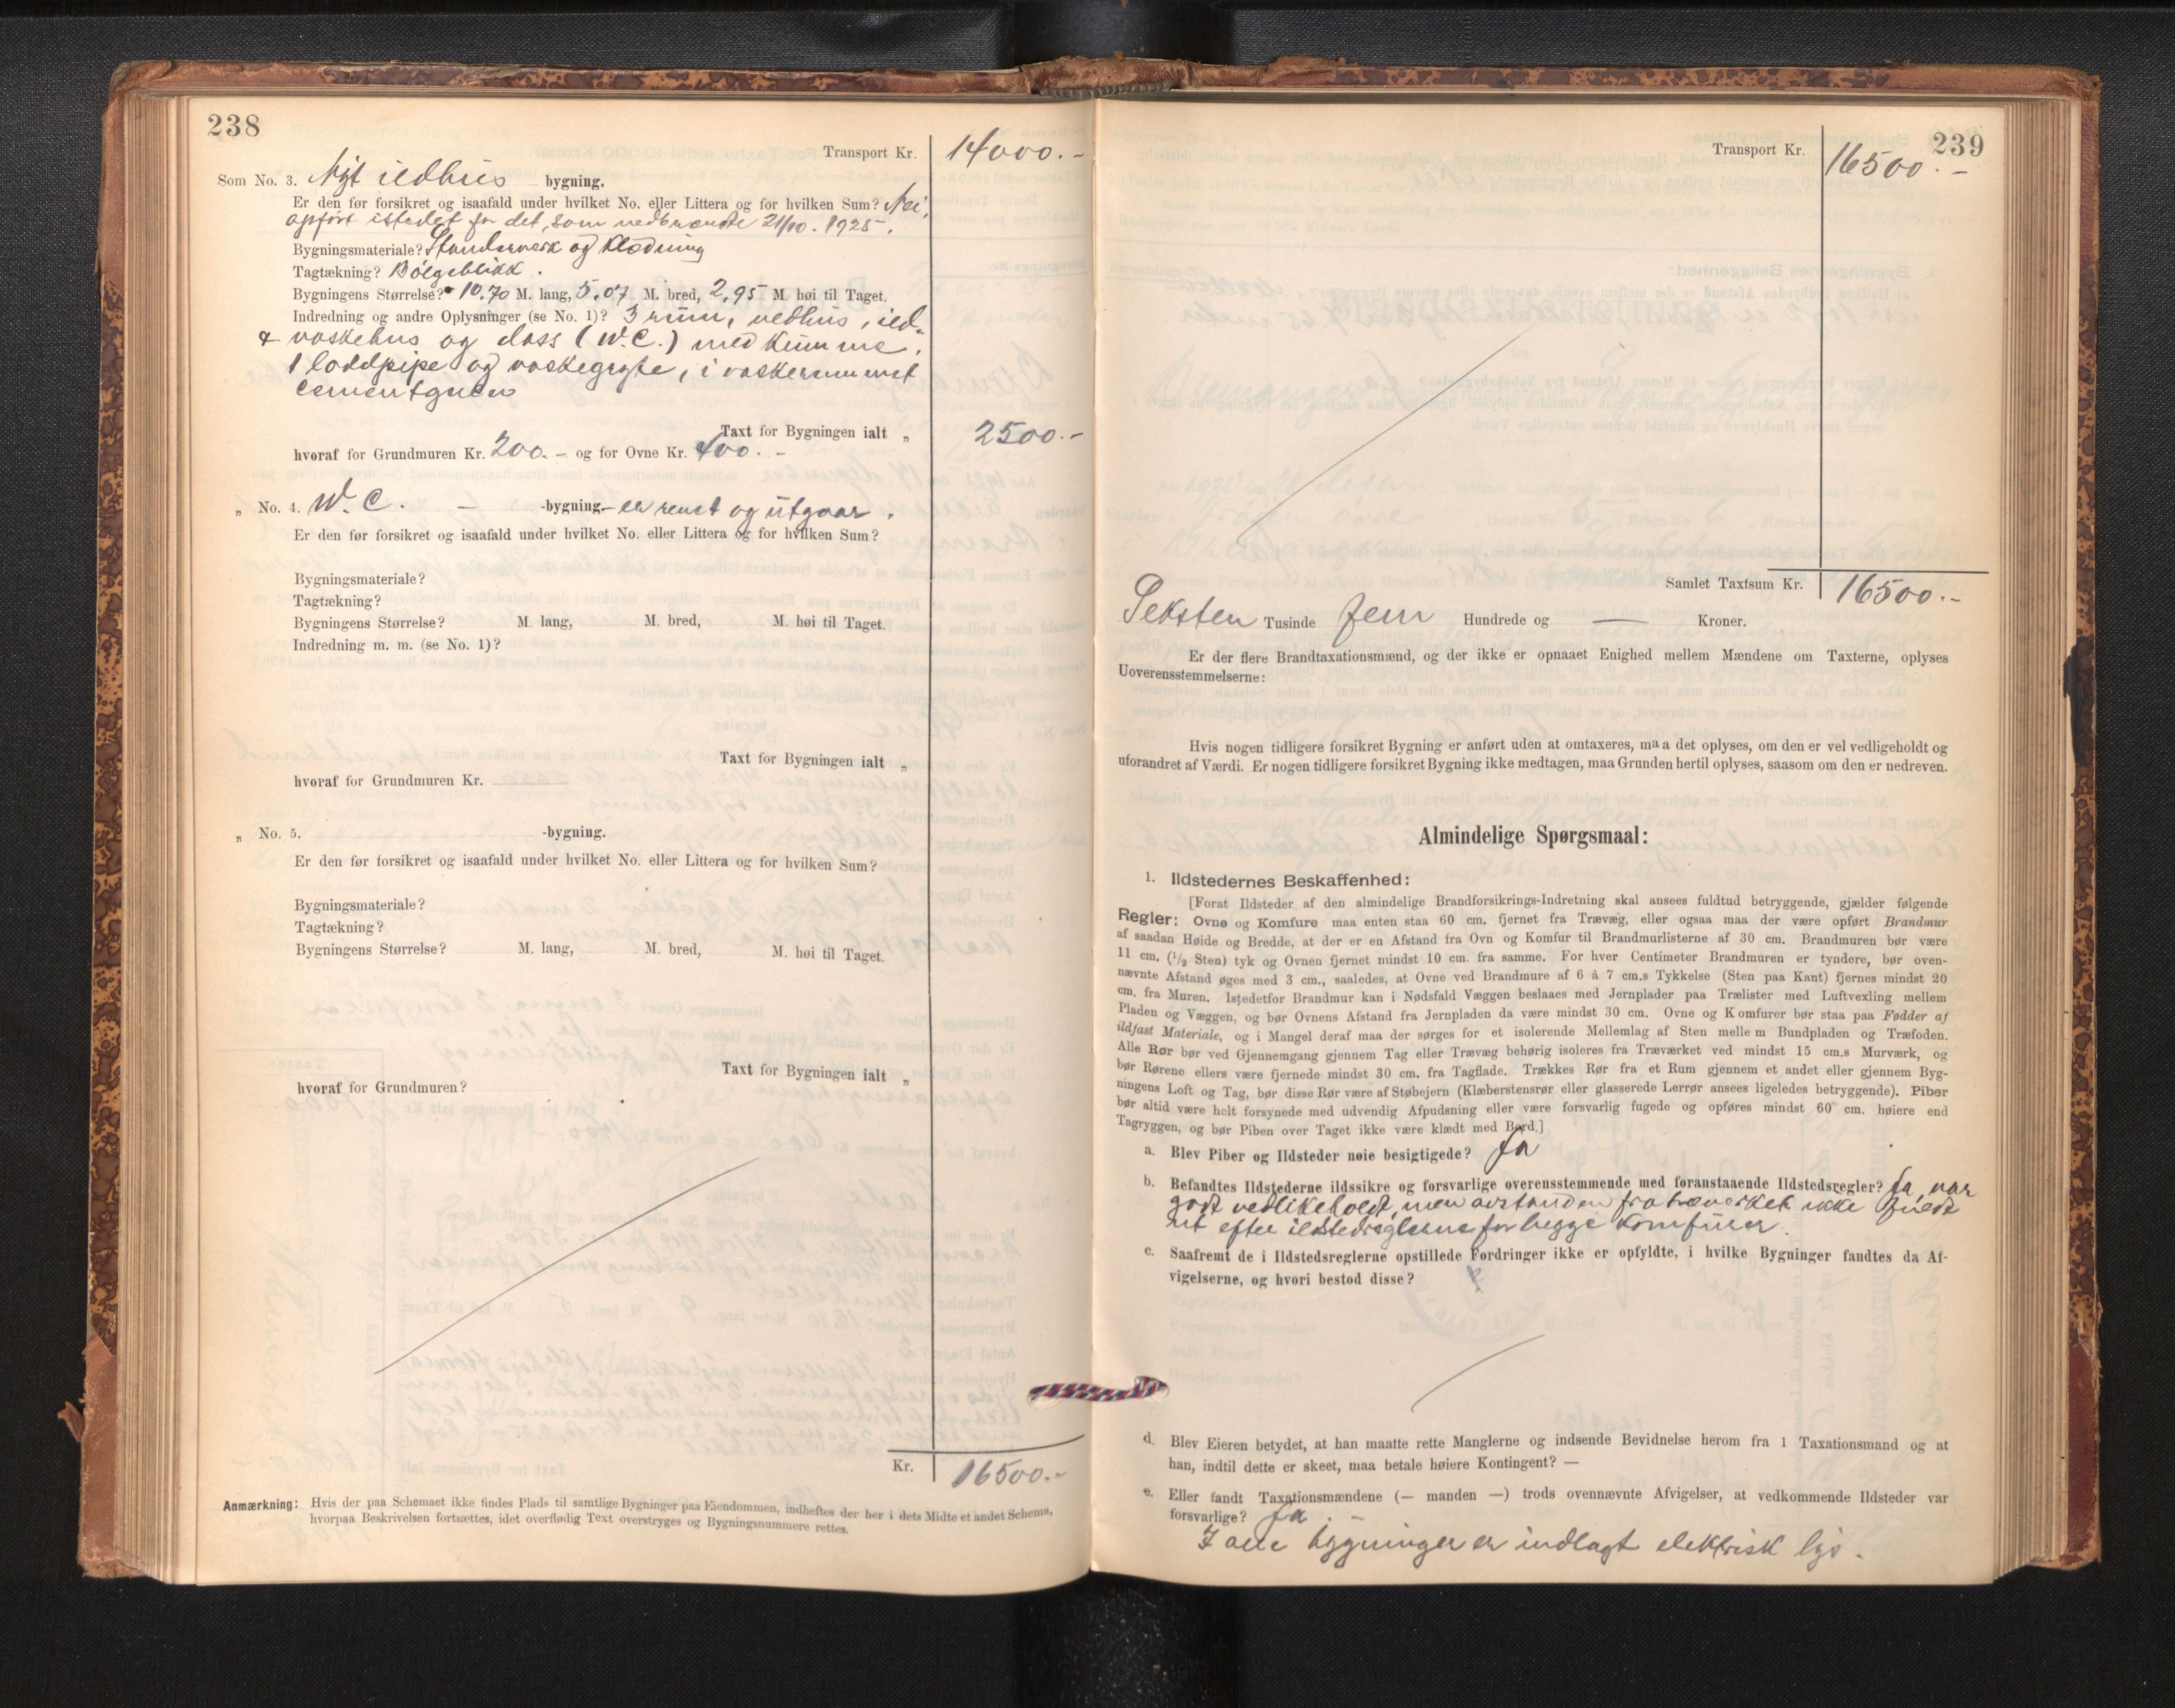 238
Transport Kr. 14000.-
Som No. 3. Nyt ildhus bygning.
Er den før forsikret og isaafald under hvilket No. eller Littera og for hvilken Sum? Nei,
opført istedet for det som nedbrændte 21/10. 1925.
Bygningsmateriale? Standerverk og Klædning
Tagtækning? Bölgeblikk.
Bygningens Størrelse? 10.70 M. lang, 5.07 M. bred, 2,95 M. høi til Taget.
Indredning og andre Oplysninger (se No. 1)? 3 rum, vedhus, ild-
& vaskehus og dass (W.C.) med Kumme.
1 loddpipe og vaskegryte, i vaskerummet
cementgulv
Taxt for Bygningen ialt „ 2500.-
hvoraf for Grundmuren Kr. 200.- og for Ovne Kr. 400.-
„ No. 4. W.C. - -bygning- er revet og utgaar.
Er den før forsikret og isaafald under hvilket No. eller Littera og for hvilken Sum?
Bygningsmateriale?
Tagtækning?
Bygningens Størrelse? M. lang, M. bred, M. høi til Taget.
Indredning m. m. (se No. 1)?
Taxt for Bygningen ialt „
hvoraf for Grundmuren Kr.
„ No. 5. -bygning.
Er den før forsikret og isaafald under hvilket No. eller Littera og for hvilken Sum?
Bygningsmateriale?
Tagtækning?
Bygningens Størrelse? M. lang, M. bred, M. høi til Taget.
Taxt for Bygningen ialt „
hvoraf for Grundmuren?
Kr. 16500.-
Anmærkning: Hvis der paa Schemaet ikke findes Plads til samtlige Bygninger paa Eiendommen, indheftes der her i dets Midte et andet Schema,
hvorpaa Beskrivelsen fortsættes, idet overflødig Text overstryges og Bygningsnummere rettes.
239
Transport Kr. 16500.-
Samlet Taxtsum Kr. 16500.-
Seksten Tusinde fem Hundrede og — Kroner.
Er der flere Brandtaxationsmænd, og der ikke er opnaaet Enighed mellem Mændene om Taxterne, oplyses
Uoverensstemmelserne:
Hvis nogen tidligere forsikret Bygning er anført uden at omtaxeres, maa det oplyses, om den er vel vedligeholdt og
uforandret af Værdi. Er nogen tidligere forsikret Bygning ikke medtagen, maa Grunden hertil oplyses, saasom om den er nedreven.
Almindelige Spørgsmaal:
1. Ildstedernes Beskaffenhed:
[Forat Ildsteder af den almindelige Brandforsikrings-Indretning skal ansees fuldtud betryggende, gjælder følgende
Regler: Ovne og Komfure maa enten staa 60 cm. fjernet fra Trævæg, eller ogsaa maa der være opført Brandmur
af saadan Høide og Bredde, at der er en Afstand fra Ovn og Komfur til Brandmurlisterne af 30 cm. Brandmuren bør være
11 cm. (1/2 Sten) tyk og Ovnen fjernet mindst 10 cm. fra samme. For hver Centimeter Brandmuren er tyndere, bør oven-
nævnte Afstand øges med 3 cm., saaledes, at Ovne ved Brandmure af 6 à 7 cm.s Tykkelse (Sten paa Kant) fjernes mindst 20
cm. fra Muren. Istedetfor Brandmur kan i Nødsfald Væggen beslaaes med Jernplader paa Trælister med Luftvexling mellem
Pladen og Væggen, og bør Ovnens Afstand fra Jernpladen da være mindst 30 cm. Ovne og Komfurer bør staa paa Fødder af
ildfast Materiale, og i Mangel deraf maa der sørges for et isolerende Mellemlag af Sten mellem Bundpladen og Træfoden.
Alle Rør bør ved Gjennemgang gjennem Tag eller Trævæg behørig isoleres fra Træværket ved mindst 15 cm.s Murværk, og
bør Rørene ellers være fjernede mindst 30 cm. fra Tagflade. Trækkes Rør fra et Rum gjennem et andet eller gjennem Byg-
ningens Loft og Tag, bør disse Rør være af Støbejern (Klæberstensrør eller glasserede Lerrør ansees ligeledes betryggende). Piber
bør altid være helt forsynede med udvendig Afpudsning eller være forsvarlig fugede og opføres mindst 60 cm. høiere end
Tagryggen, og bør Piben over Taget ikke være klædt med Bord.]
a. Blev Piber og Ildsteder nøie besigtigede? Ja
b. Befandtes Ildstederne ildssikre og forsvarlige overensstemmende med foranstaaende Ildstedsregler? Ja, var
godt vedlikeholdt, men avstanden fra træverket ikke fuldt
ut efter ildstedreglerne for begge Komfurer.
c. Saafremt de i Ildstedsreglerne opstillede Fordringer ikke er opfyldte, i hvilke Bygninger fandtes da Af-
vigelserne, og hvori bestod disse?
d. Blev Eieren betydet, at han maatte rette Manglerne og indsende Bevidnelse herom fra 1 Taxationsmand og at
han, indtil dette er skeet, maa betale høiere Kontingent? —
e. Eller fandt Taxationsmændene (— manden —) trods ovennævnte Afvigelser, at vedkommende Ildsteder var
forsvarlige? Ja
I alle bygninger er indlagt elektrisk lys.